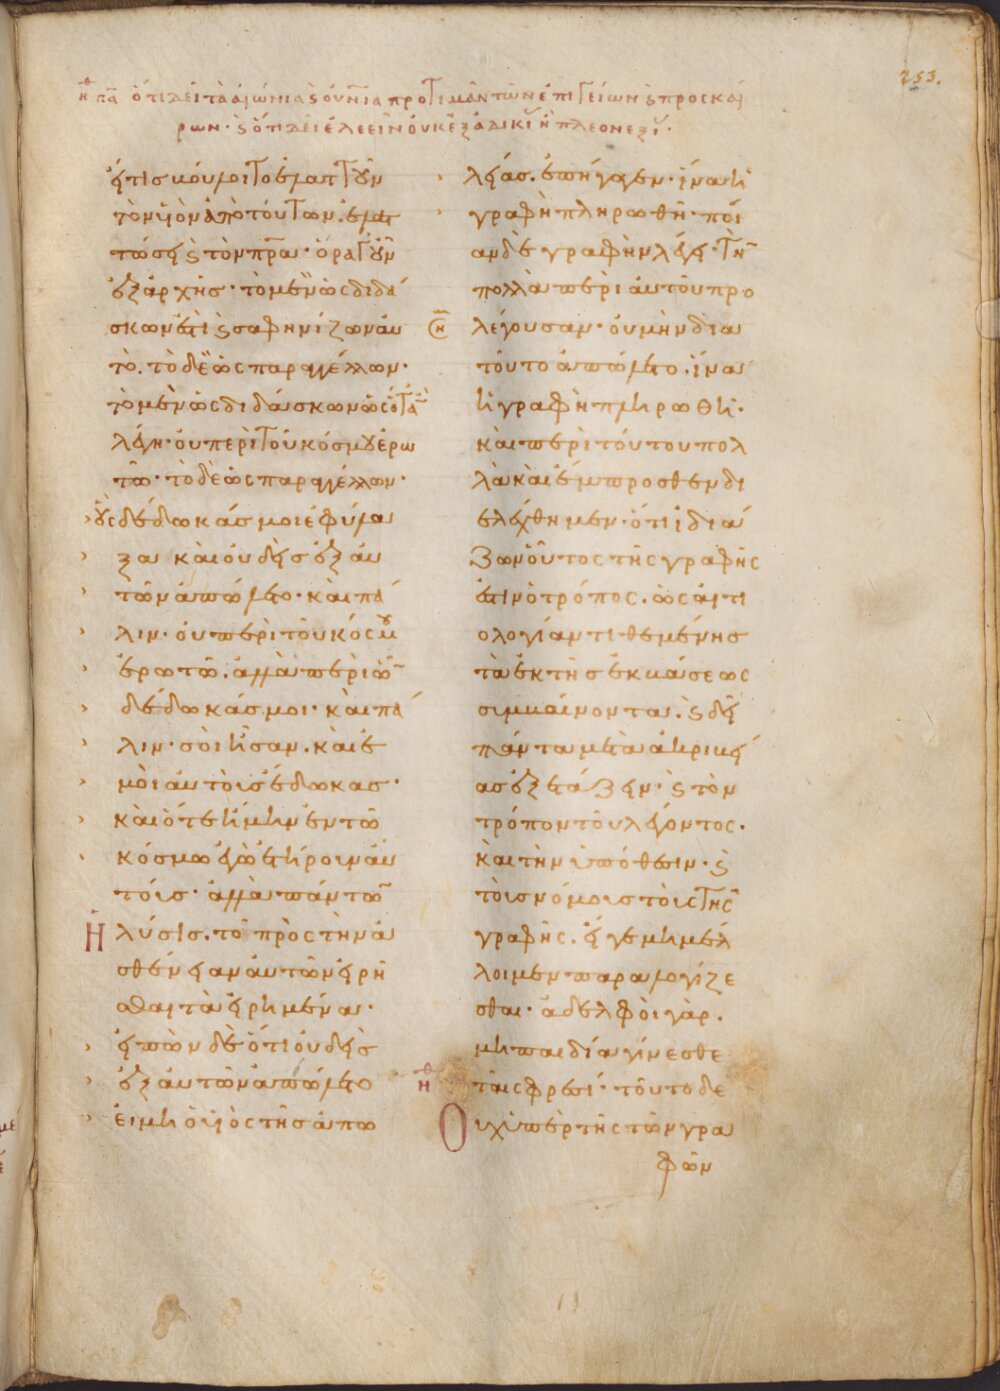 253.
ὅτι δεῖ τὰ αἰώνια καὶ οὐράνια προτιμᾶν τῶν ἐπιγείων καὶ προσκαί
ρων· καὶ ὅτι δεῖ ἐλεεῖν οὐκ ἐξ ἀδικίας ἢ πλεονεξίας·
τὸν υἱὸν ἀπὸ τούτων
ἐξαρχῆς· τὸ μὲν ὡς διδά
σκων ἔτι καὶ σαφηνίζων αὐ
τό. τὸ δὲ ὡς παραγγέλλων·
τὸ μὲν ὡς διδάσκων ὡς ὅταν
λέγη· οὐ περὶ τοῦ κόσμου ἐρω
τῶ· τὸ δὲ ὡς παραγγέλλων·
οὓς δέδωκάς μοι ἐφύλα
ξα καὶ οὐδεὶς ἐξ αὐ
τῶν ἀπώλετο· καὶ πά
λιν· οὐ περὶ τοῦ κόσμου
ἐρωτῶ. ἀλλὰ περὶ ὧν
δέδωκάς μοι· καὶ πά
λιν· σοὶ ἦσαν. καὶ ἐ
μοὶ αὐτοὺς ἔδωκας·
καὶ ὅτε ἤμην ἐν τῶ
κόσμω ἐγὼ ἐτήρουν αὐ
τούς· ἀλλὰ πάντων
Ἡ λύσις. τὸ πρὸς τὴν ἀ
σθένειαν αὐτῶν εἰρῆ
σθαι τὰ εἰρημένα·
εἰπὼν δὲ ὅτι οὐδεὶς
ἐξ αὐτῶν ἀπώλετο
εἰ μὴ ὁ υἱὸς τῆς ἀπω
λείας. ἐπήγαγεν· ἵνα ἡ
γραφὴ πληρωθῆ· ποί
αν δὲ γραφὴν λέγει· τὴν
πολλὰ περὶ αὐτοῦ προ
λέγουσαν· οὐ μὴν διὰ
τοῦτο ἀπώλετο. ἵνα
ἡ γραφὴ πληρωθῆ·
καὶ περὶ τούτου πολ
λὰ καὶ ἔμπροσθεν δι
ελέχθημεν· ὅτι ἰδιά
ζων οὗτος τῆς γραφῆς
ἐστιν ὁ τρόπος. ὡς αἰτι
ολογίαν τιθεμένης
τὰ ἐκ τῆς ἐκβάσεως
συμβαίνοντα. καὶ δεῖ
πάντα μετὰ ἀκριβεί
ας ἐξετάζειν· καὶ τὸν
τρόπον τοῦ λέγοντος·
καὶ τὴν ὑπόθεσιν· καὶ
τοὺς νόμους τοὺς τῆς
γραφῆς. εἴγε μὴ μέλ
λοιμεν παραλογίζε
σθαι· ἀδελφοὶ γὰρ.
μὴ παιδία γίνεσθε
ταῖς φρεσί· τοῦτο δὲ
Οὐχ ὑπὲρ τῆς τῶν γρα
φῶν